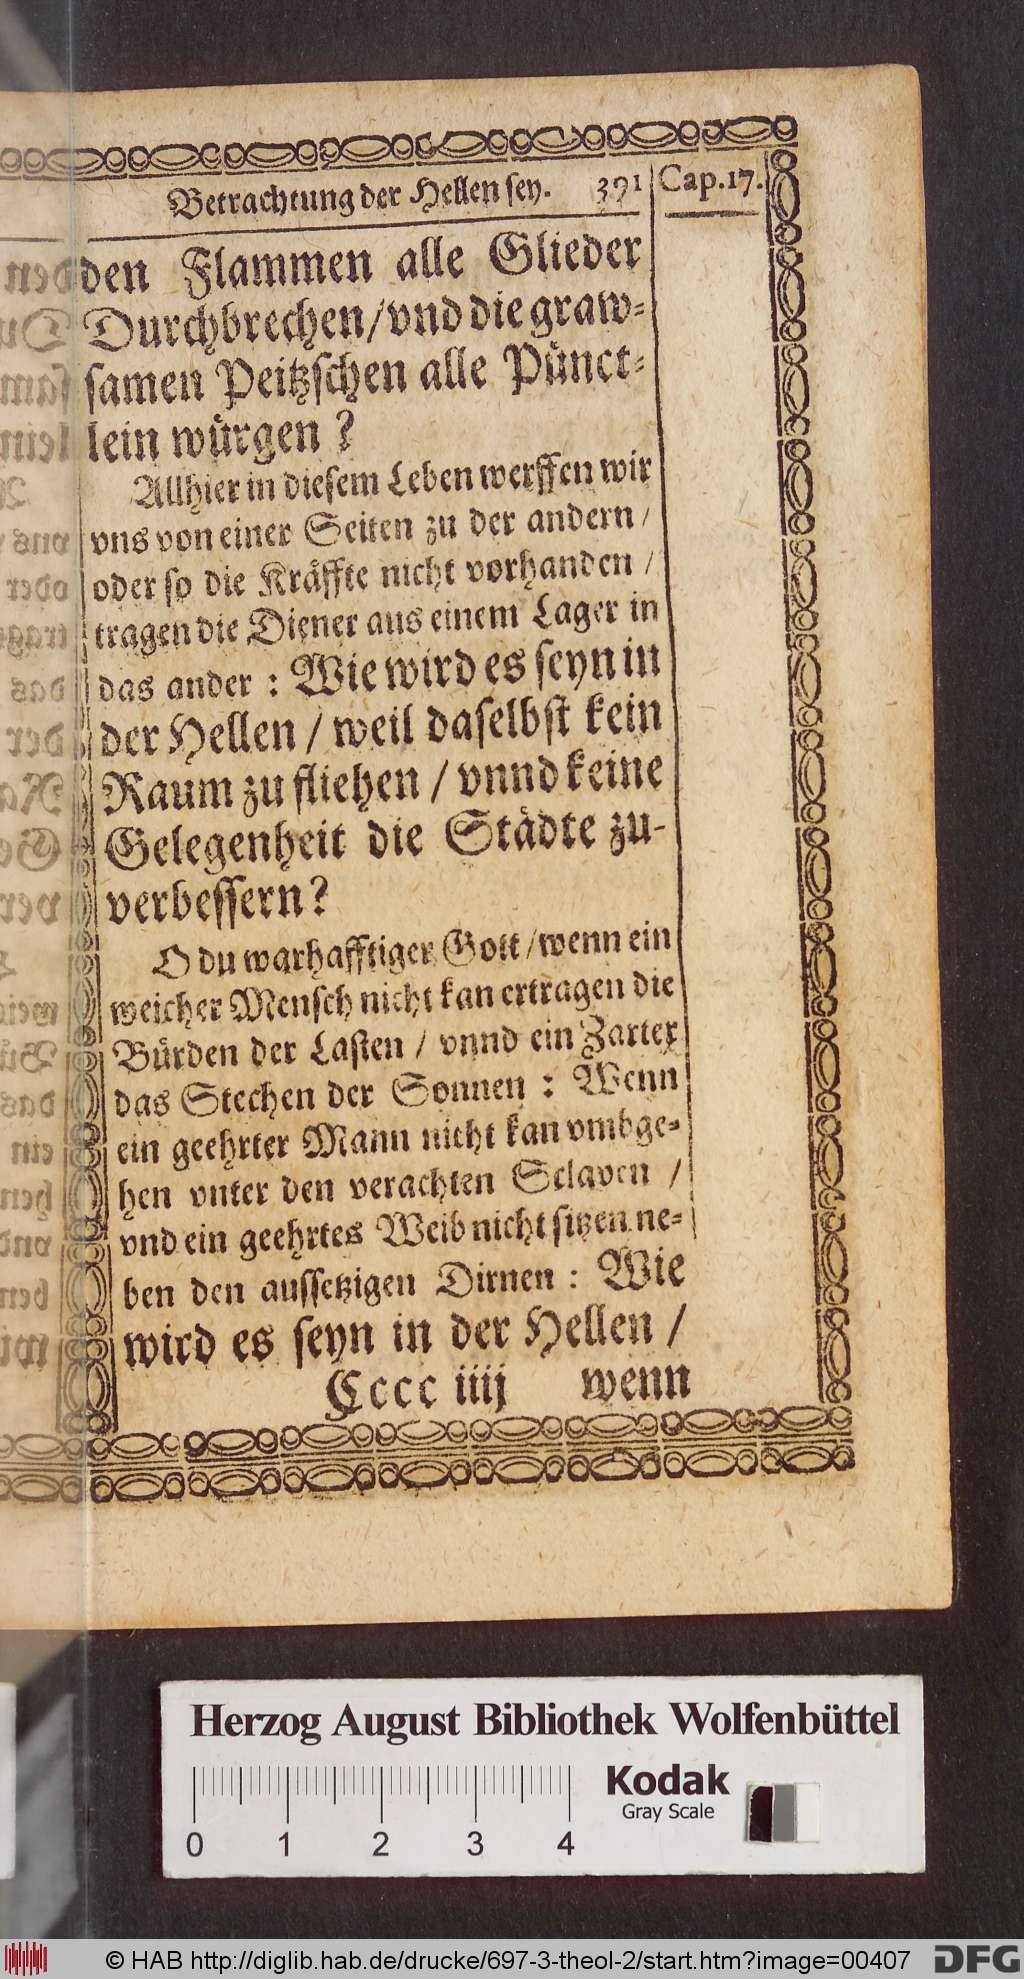 Betrachtung der Hellen sey. 391 Cap. 17.
den Flammen alle Glieder
Durchbrechen / vnd die graw-
samen Peitzschen alle Pünct-
lein würgen ?
Allhier in diesem Leben werffen wir
vns von einer Seiten zu der andern /
oder so die Kräffte nicht vorhanden /
tragen die Diener aus einem Lager in
das ander : Wie wird es seyn in
der Hellen / weil daselbst kein
Raum zu fliehen / vnnd keine
Gelegenheit die Städte zu-
verbessern ?
O du warhafftiger Gott / wenn ein
weicher Mensch nicht kan ertragen die
Bürden der Lasten / vnnd ein Zarter
das Stechen der Sonnen : Wenn
ein geehrter Mann nicht kan vmbge-
hen vnter den verachten Sclaven /
vnd ein geehrtes Weib nicht sitzen ne-
ben den aussetzigen Dirnen : Wie
wird es seyn in der Hellen /
Cccc iiij wenn
Herzog August Bibliothek Wolfenbüttel
Kodak
Gray Scale
0 1 2 3 4
© HAB http://diglib.hab.de/drucke/697-3-theol-2/start.htm?image=00407 DFG